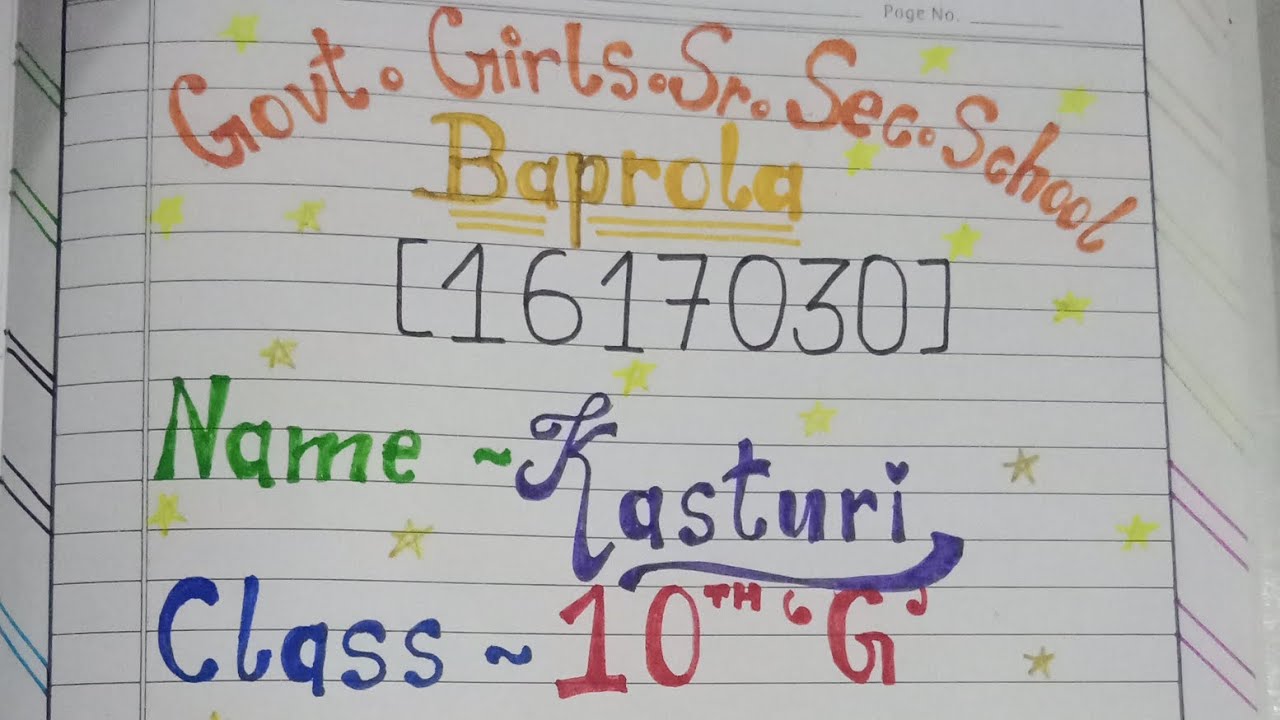 Page No.
Govt. Girls. Sr. Sec. School
Baprola
[1617030]
Name ~ Kasturi
Class ~ 10TH 'G'